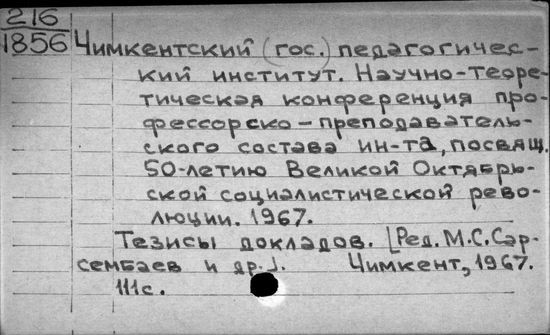 216
1856
Чимкентский (гос.) педагогичес-
кий институт. Научно-теоре-
тическая конференция про-
фессорско-преподаватель-
ского состава ин-та, посвящ.
50-летию Великой Октябрь-
ской социалистической рево-
люции. 1967.
Тезисы докладов. [Ред. М.С.Сар-
сембаев и др.]. Чимкент, 1967.
111с.